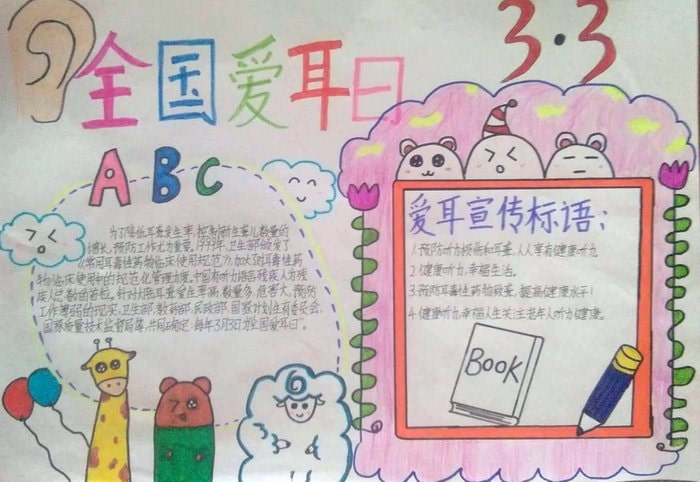 全国爱耳日
3·3
ABC
为了降低耳聋发生率,控制新生聋儿数量的
增长,预防工作尤为重要,1999年,卫生部颁发了
《常用耳毒性药物临床使用规范》,加大对耳毒性药
物临床使用的规范化管理力度。中国有听力语言残疾人为残
疾人总数的首位。针对
耳聋发生率高、数量多、危害大,预防
工作薄弱的现实,卫生部、教育部、民政部、国家计划生育委员会、
国家质量技术监督局等,共同确定:每年3月3日为全国爱耳日"。
爱耳宣传标语:
1.预防听力损伤和耳聋,人人享有健康听力
2.健康听力,幸福生活。
3.预防耳毒性药物致聋,提高健康水平!
4.健康听力,幸福人生关注老年人听力健康。
BOOK